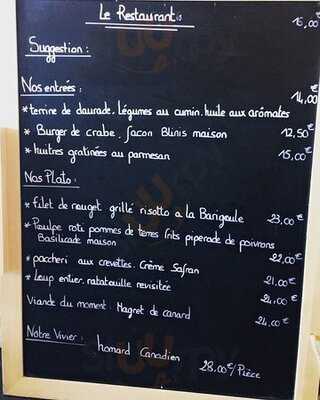 Le Restaurant:
15,00€
Suggestion:
Nos entrées:
* terrine de daurade. légumes au cumin. huile aux arômates 14,00€
* Burger de crabe. façon Blinis maison 12,50€
* huîtres gratinées au parmesan 15,00€
Nos Plats:
* filet de rouget grillé risotto a la Barigoule 23,00€
* Poulpe roti pommes de terres frits piperade de poivrons
Basilicade maison 22,00€
* paccheri aux crevettes. Crème Safran 21,00€
* Loup entier. ratatouille revisitée 24,00€
Viande du moment: Magret de canard 24,00€
Notre Vivier:
homard Canadien 28.00€/Pièce